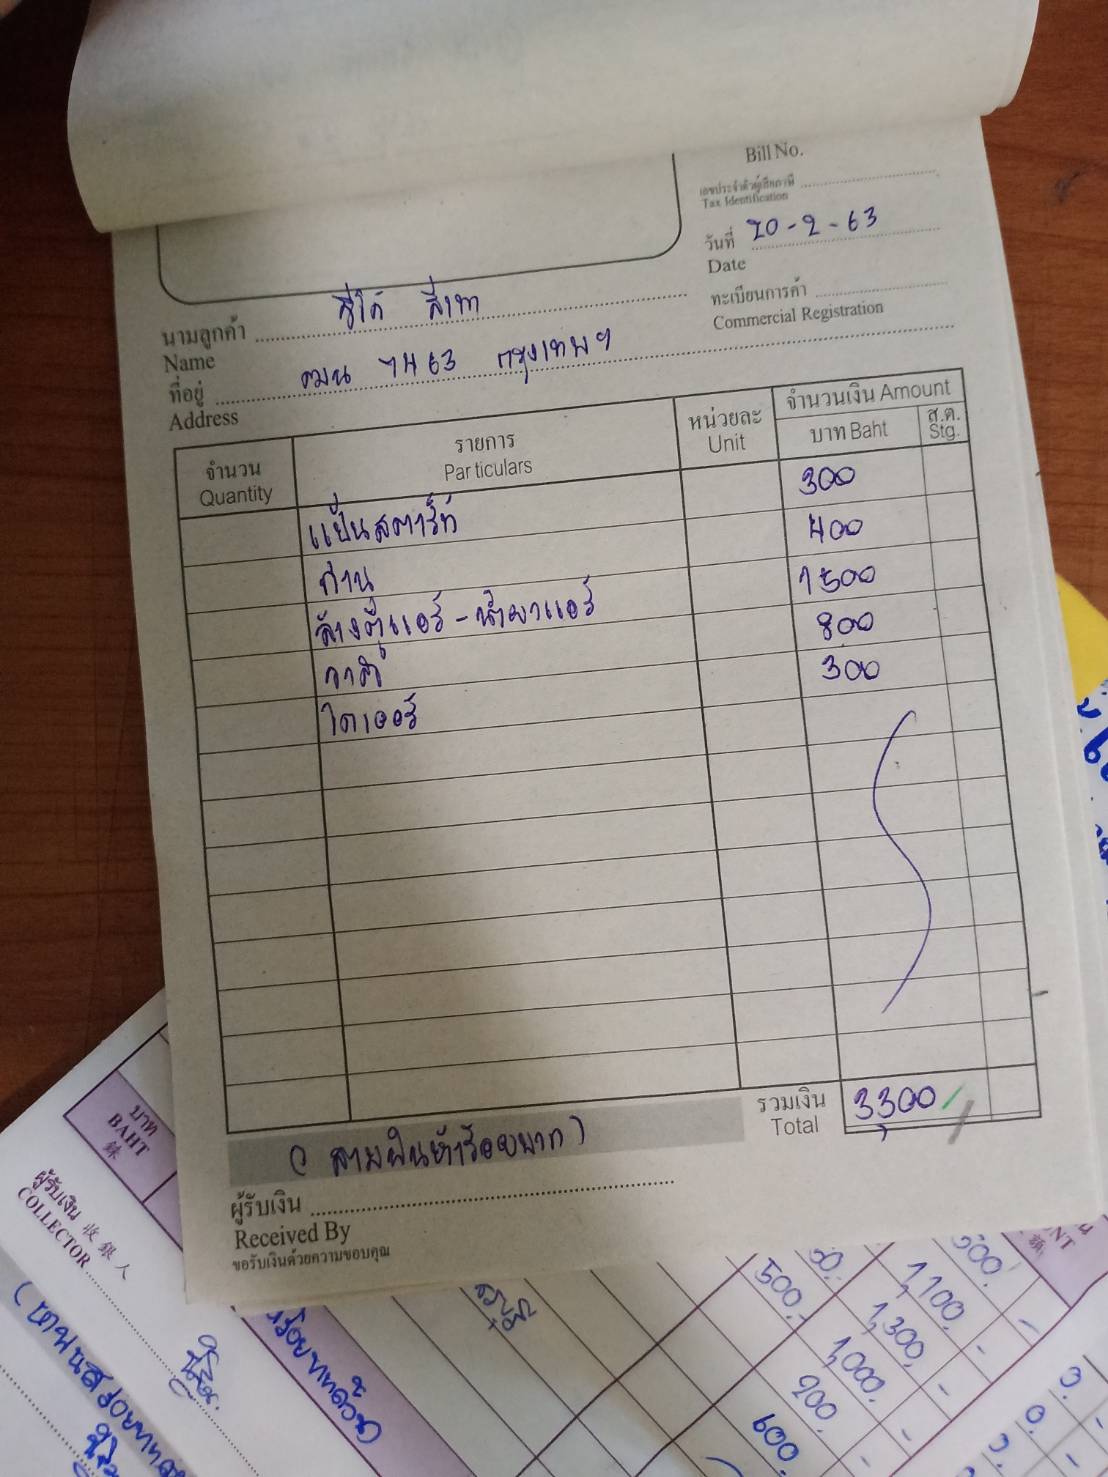 Bill No.
เลขประจำตัวผู้เสียภาษี
Tax Identification
วันที่ 20-2-63
Date
ทะเบียนการค้า
Commercial Registration
นามลูกค้า วีโก้ สีเทา
Name
ที่อยู่ ฒน 7463 กรุงเทพฯ
Address
จำนวน รายการ หน่วยละ จำนวนเงิน Amount
Quantity Particulars Unit บาท Baht ส.ต. Stg.
แป้นสตาร์ท 300
ถ่าน 400
ล้างตู้แอร์-น้ำยาแอร์ 1500
วาล์ว 800
ไดเออร์ 300
รวมเงิน 3,300
Total
ผู้รับเงิน
Received By
ขอรับเงินด้วยความขอบคุณ
บาท
BAHT
銖
ผู้รับเงิน 收銀人
COLLECTOR
500.
1,100.
1,300.
1,000.
900.
600.